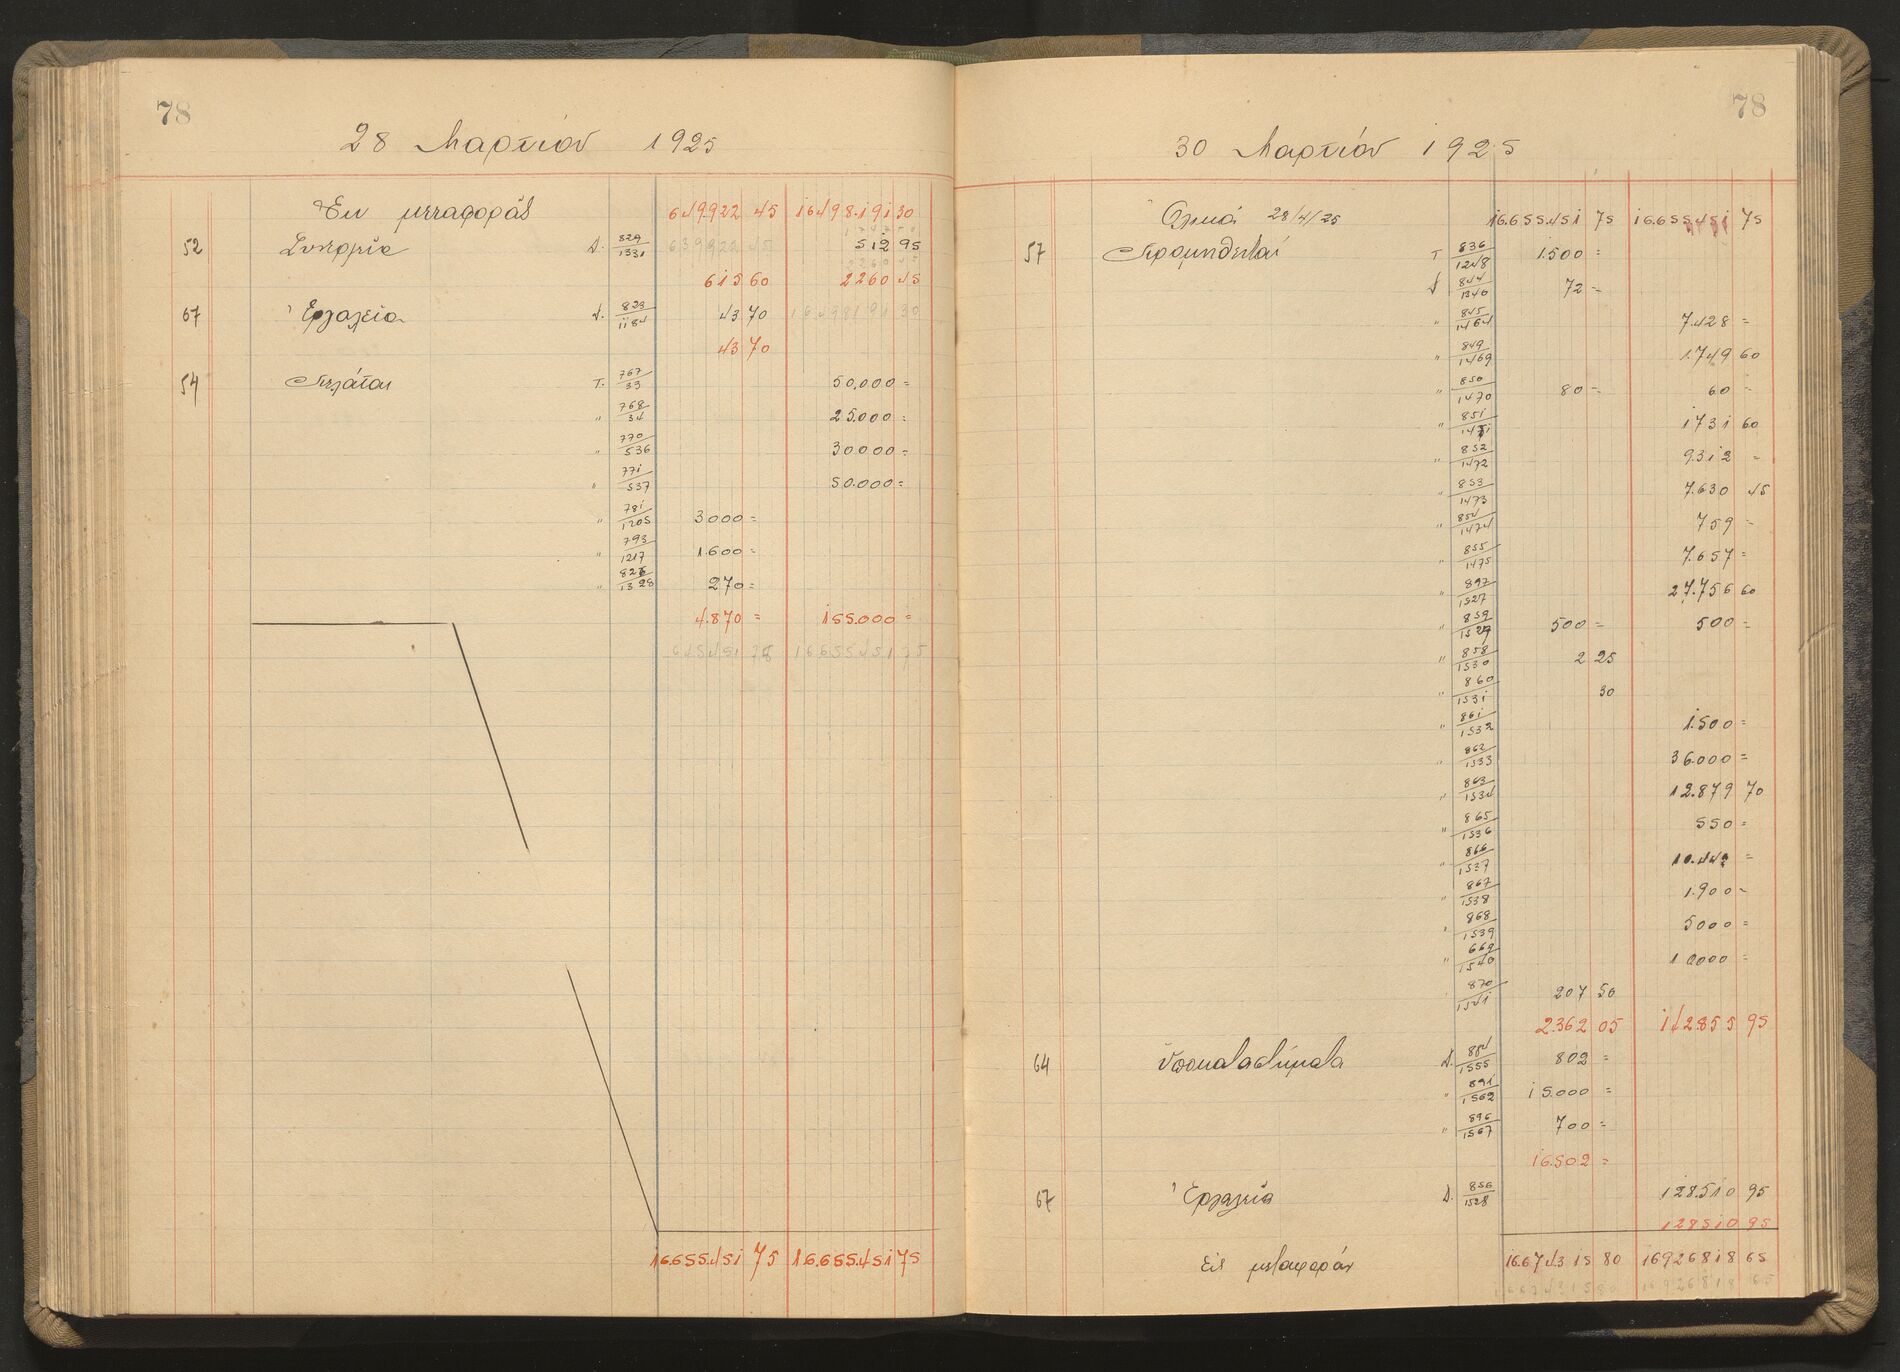 78
28 Μαρτίου 1925
Εκ μεταφοράς 649.922 45 16498.191 30
52 Συνεργεία Δ. 829/1331 639922 45 512 95
615 60 2260 45
67 Ἐργαλεία Δ. 829/1184 43 70 16498191 30
43 70
54 Πελάται Τ. 767/33 50.000 =
" 768/34 25.000 =
" 770/536 30000 =
" 771/537 50.000 =
" 781/1205 3000 =
" 793/1217 1.600 =
" 826/1328 270 =
4.870 = 155.000 =
16.655.451 75 16.655.451 75
78
30 Μαρτίου 1925
Ολικά 28/4/25 16.655.451 75 16.655.451 75
57 Προμηθευταί Τ 836/1248 1.500 =
Δ 844/1340 72 =
" 845/1464 7.428 =
" 849/1469 1.749 60
" 850/1470 80 = 60 =
" 851/1471 1731 60
" 852/1472 9.312 =
" 853/1473 7.630 45
" 854/1474 759 =
" 855/1475 7.657 =
" 897/1527 27.756 60
" 859/1529 500 = 500 =
" 858/1530 2 25
" 860/1531 30
" 861/1532 1.500 =
" 862/1533 36.000 =
" 863/1534 12.879 70
" 865/1536 550 =
" 866/1537 10.442 =
" 867/1538 1.900 =
" 868/1539 5000 =
" 669/1540 10000 =
870/1541 207 50
2.362 05 142.855 95
64 Υποκαταστήματα Δ. 884/1555 802 =
" 891/1562 15.000 =
" 896/1567 700 =
16.502 =
67 Ἐργαλεία Δ. 856/1528 128.510 95
128510 95
Εις μεταφοράν 16.674315 80 16926818 65
16674315 80 16926818 65